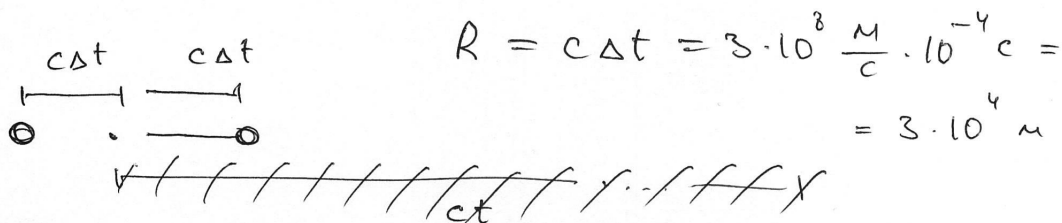 cΔt cΔt
R = cΔt = 3·10⁸ м/с · 10⁻⁴ с =
= 3·10⁴ м
ct